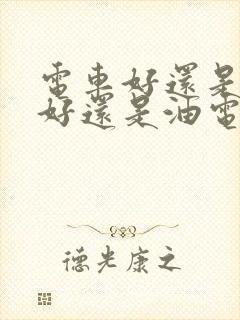 電車好還是
好還是油電
德光康之